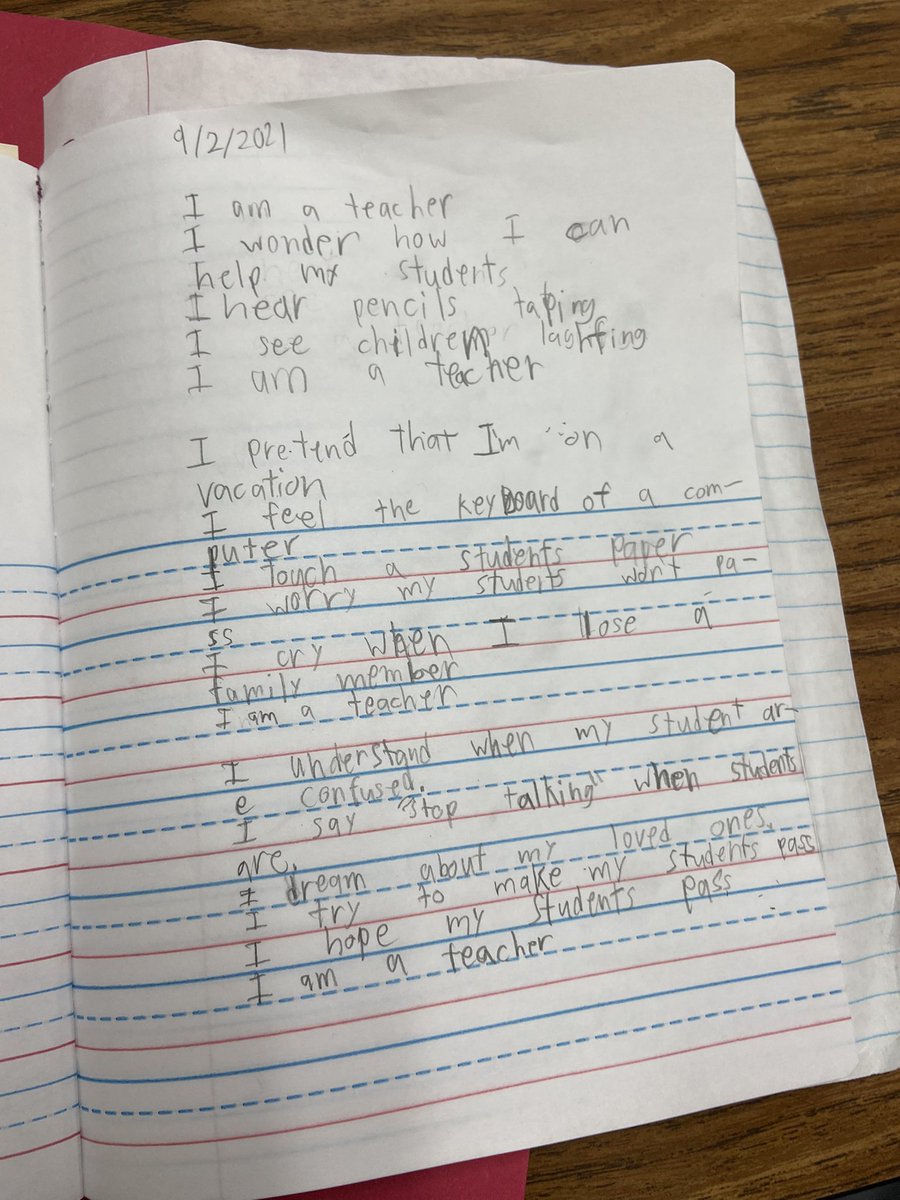 9/2/2021
I am a teacher
I wonder how I can
help my students
I hear pencils taping
I see children laghfing
I am a teacher
I pretend that Im on a
vacation
I feel the keyboard of a com-
puter
I touch a students paper
I worry my students won't pa-
ss
I cry when I lose a
family member
I am a teacher
I understand when my student ar-
e confused.
I say "stop talking" when students
are.
I dream about my loved ones.
I try to make my students pass
I hope my students pass
I am a teacher